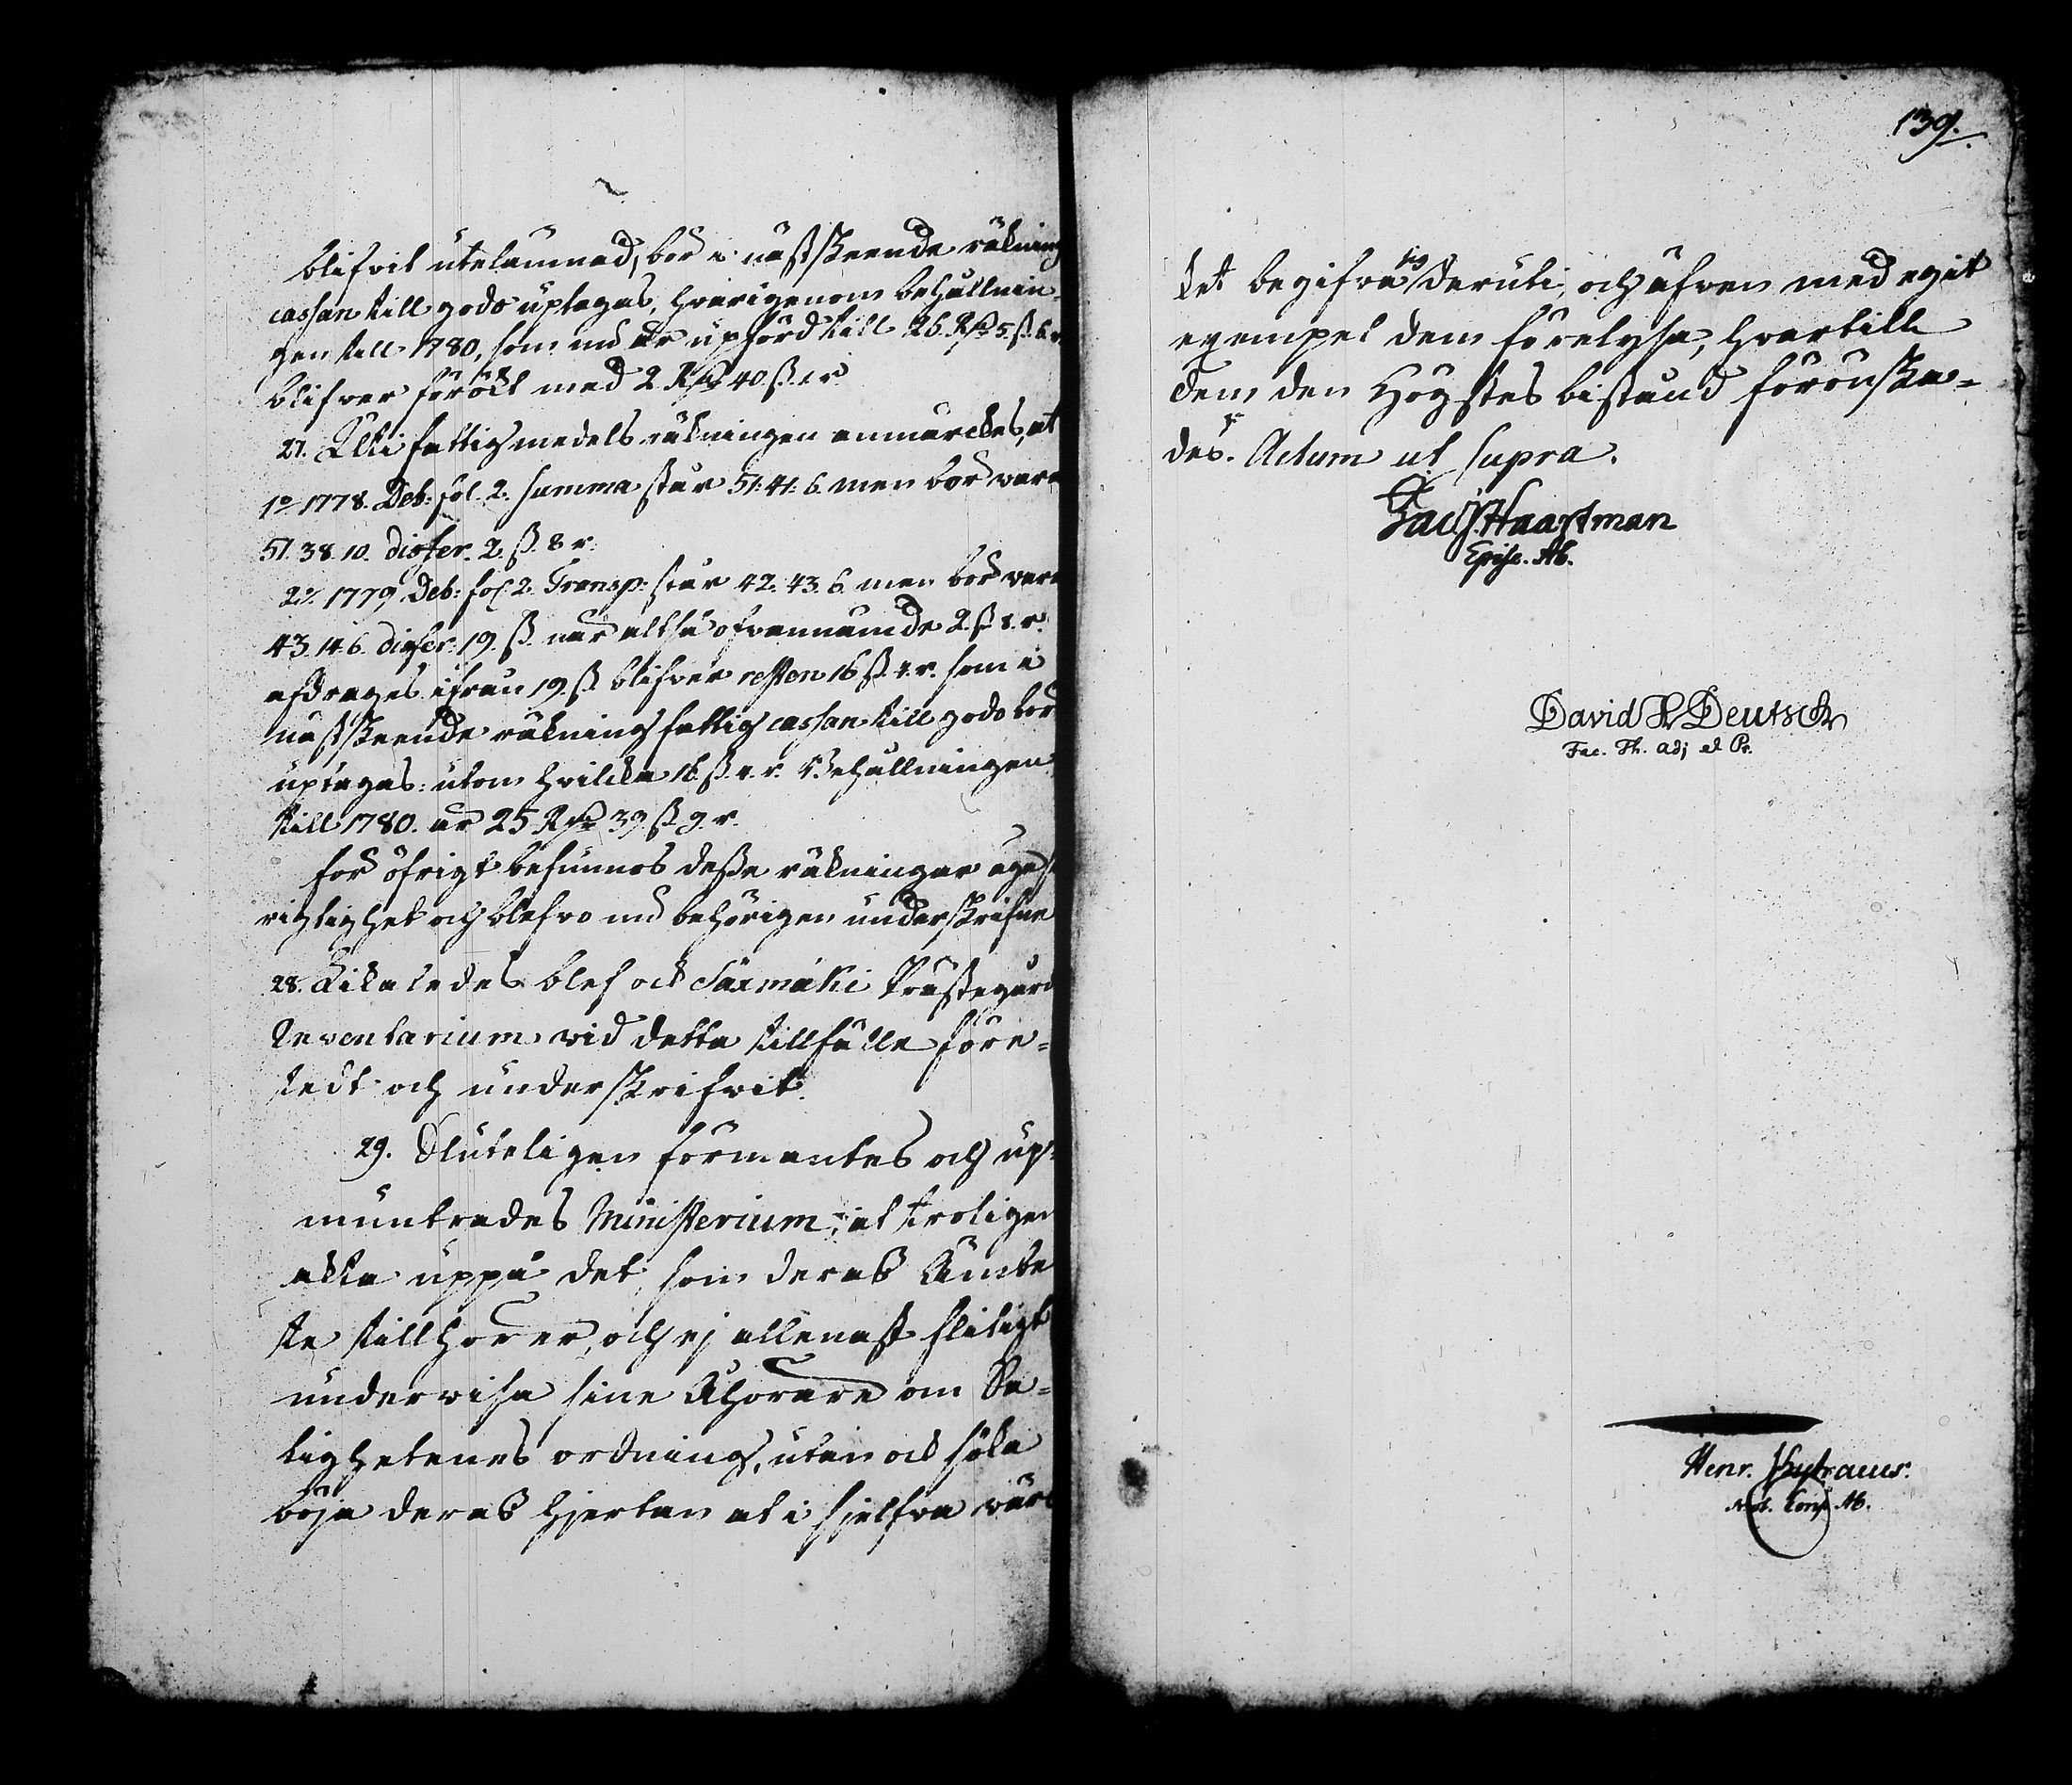 blifvit utelämnad, bör i nästskeende räkning
cassan till godo uptagas, hvarigenom behållnin-
gen till 1780, som nu är upförd till 26. Rd 5. ß. 6 r.
blifver förökt med 2. Rd 40 ß. 1 r.
27. Uti fattigmedels räkningen anmärckes, at
1o 1778. Deb: fol. 2. summa står 51: 41: 6. men bör vara
51. 38. 10. differ. 2. ß. 8 r.
2o 1779. Deb: fol. 2. Transp: står 42. 43. 6. men bör vara
43. 14. 6. differ: 19. ß. när altså ofvannämde 2. ß 8. r.
afdrages ifrån 19. ß blifver resten 16 ß 4. r. som i
nästskeende räkning fattig cassan till godo bör
uptagas: utom hvilcka 16. ß 4. r. Behållningen
till 1780. är 25 Rd 39. ß 9. r.
För öfrigt befunnos desse räkningar äga sin
rigtighet och blefvo nu behörigen underskrifne
28. Likaledes blef ock Säxmäki Prästegård
Inventarium vid detta tillfälle före-
tedt och underskrifvit.
29. Sluteligen förmantes och up-
muntrades Ministerium, at troligen
akta uppå det, som deras Ämbe
te tillhörer, och ej allenast flitigt
undervisa sine Åhörare om Sa-
lighetenes ordning, utan ock söka
böja deras hjertan at i sjelfva värc
139.
ket begifva sig deruti, och äfven med egit
exempel dem förelysa, hvartill
dem den Högstes bistånd förönska-
des. Actum ut supra.
Jac. Haartman
Episc. Ab.
David H Deutsch
Fac. Th. Adj et Pr.
Henr. Chytraeus.
Not. Cons. Ab.